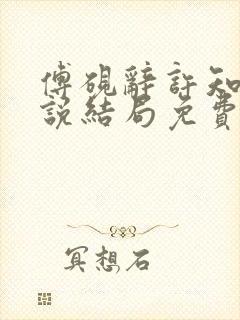 傅硯辭許知
說結局免費
冥想石